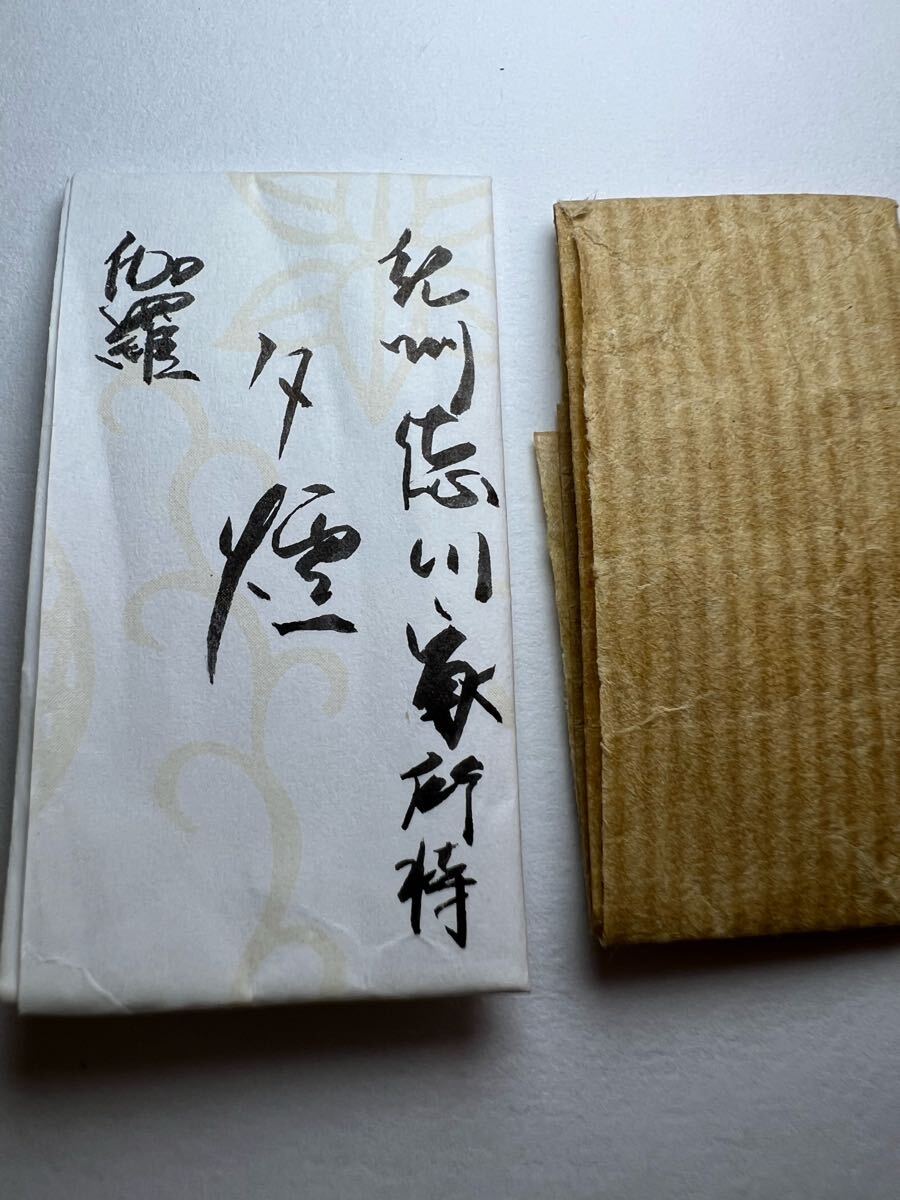 紀州徳川家所持
夕煙
伽羅